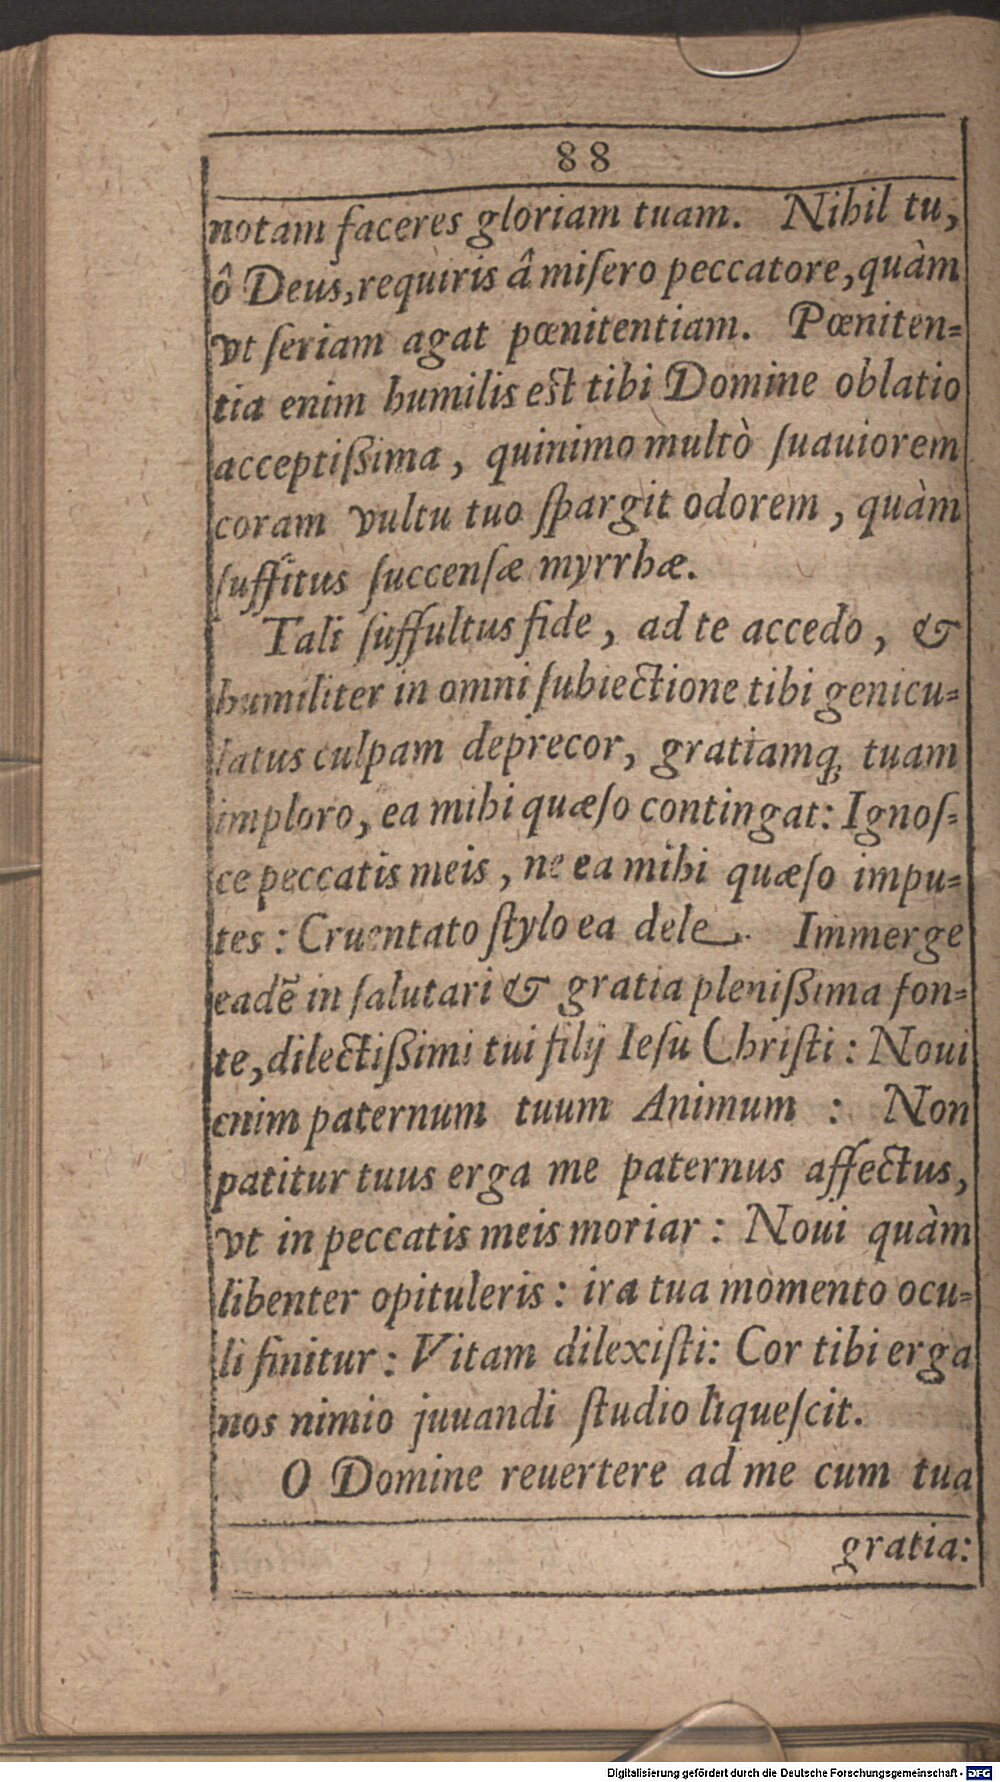 88
notam faceres gloriam tuam. Nihil tu,
ô Deus, requiris â miſero peccatore, quàm
vt ſeriam agat pœnitentiam. Pœniten=
tia enim humilis est tibi Domine oblatio
acceptiſſima, quinimo multò ſuauiorem
coram vultu tuo ſpargit odorem, quàm
ſuffitus ſuccenſæ myrrhæ.
Tali ſuffultus fide, ad te accedo, &
humiliter in omni ſubiectione tibi genicu=
latus culpam deprecor, gratiamq́; tuam
imploro, ea mihi quæſo contingat: Ignoſ=
ce peccatis meis, ne ea mihi quæſo impu=
tes: Cruentato ſtylo ea dele. Immerge
eadē in ſalutari & gratia pleniſſima fon=
te, dilectiſſimi tui filij Ieſu Chriſti: Noui
enim paternum tuum Animum: Non
patitur tuus erga me paternus affectus,
vt in peccatis meis moriar: Noui quàm
libenter opituleris: ira tua momento ocu=
li finitur: Vitam dilexiſti: Cor tibi erga
nos nimio juuandi ſtudio liqueſcit.
O Domine reuertere ad me cum tua
gratia:
Digitalisierung gefördert durch die Deutsche Forschungsgemeinschaft - DFG